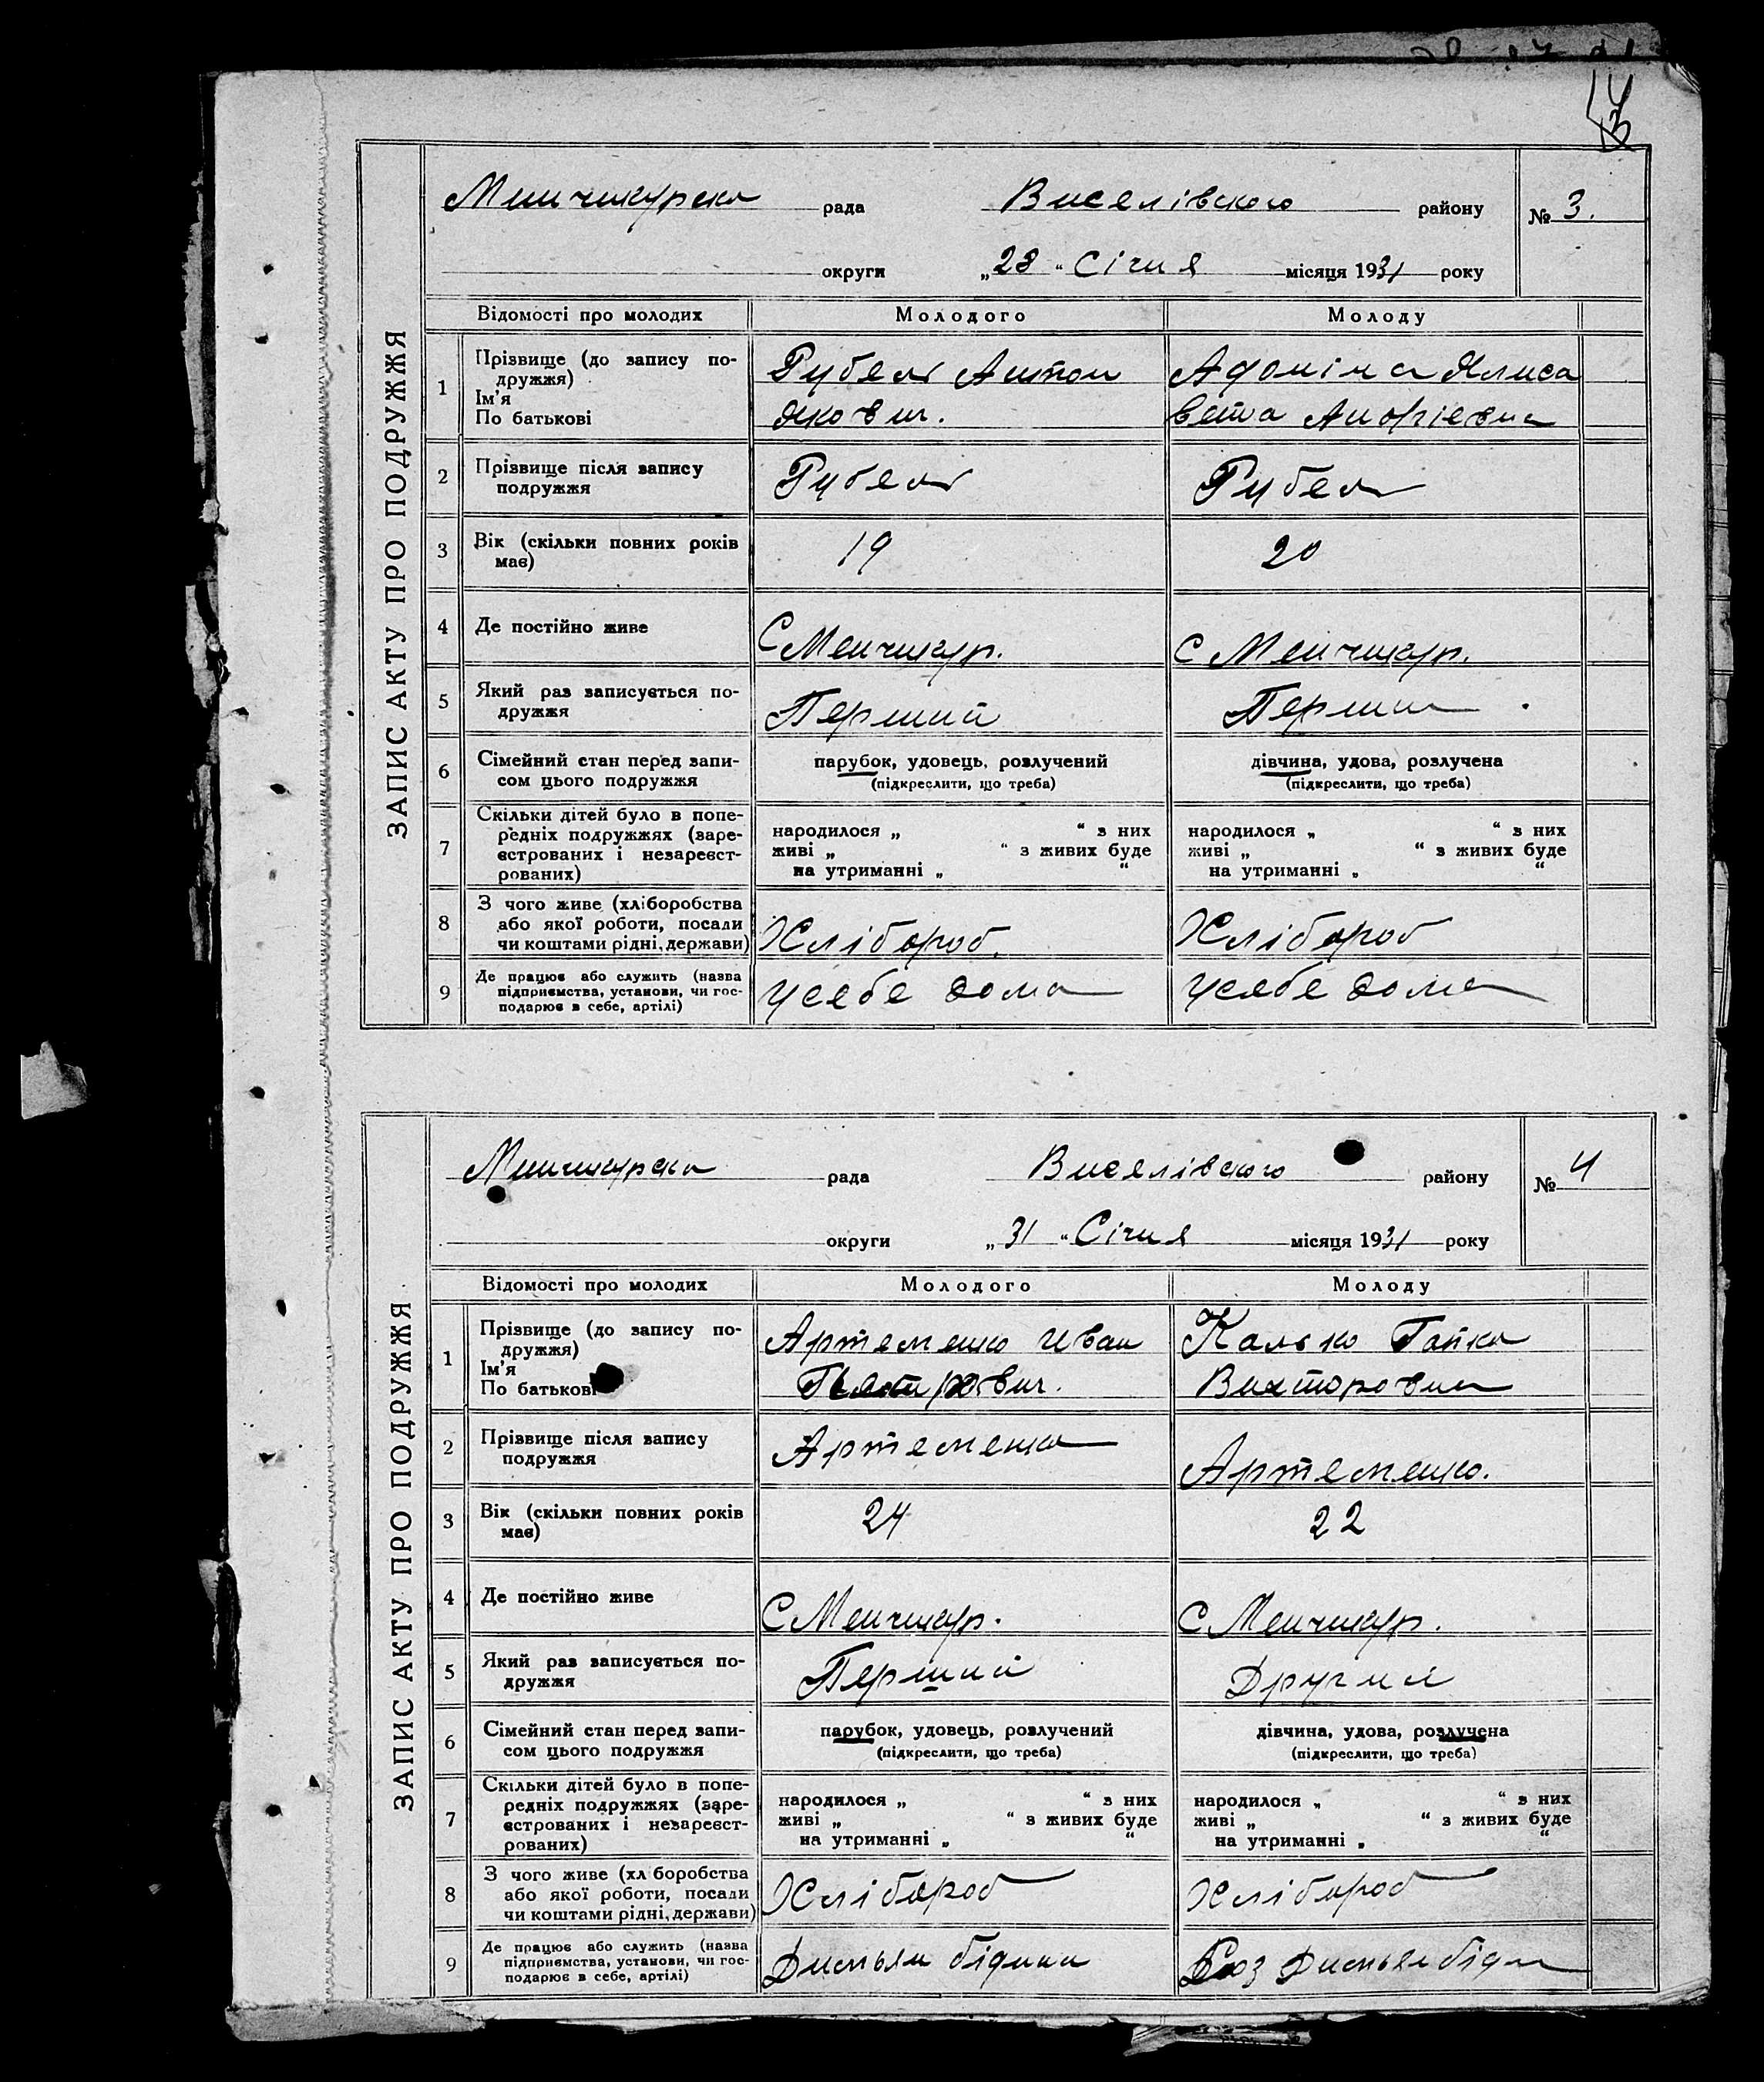 Менчикурска рада Виселівского району № 3.
округи „28“ Січня місяця 1931 року
ЗАПИС АКТУ ПРО ПОДРУЖЖЯ
Відомості про молодих Молодого Молоду
1 Прізвище (до запису по-
дружжя)
Ім'я
По батькові
Рубель Антон
Якович.
Адоніна Ялиса
вета Андрієвна
2 Прізвище після запису
подружжя
Рубель Рубель
3 Вік (скільки повних років
має)
19 20
4 Де постійно живе С Менчикур. С Менчикур.
5 Який раз записується по-
дружжя
Перший Перши
6 Сімейний стан перед запи-
сом цього подружжя
парубок, удовець, розлучений
(підкреслити, що треба)
дівчина, удова, розлучена
(підкреслити, що треба)
7 Скільки дітей було в попе-
редніх подружжях (заре-
єстрованих і незареєст-
рованих)
народилося „ “ з них
живі „ “ з живих буде
на утриманні „ “
народилося „ “ з них
живі „ “ з живих буде
на утриманні „ “
8 З чого живе (хліборобства
або якої роботи, посади
чи коштами рідні, держави)
Хлібороб. Хлібороб
9 Де працює або служить (назва
підприємства, установи, чи гос-
подарює в себе, артілі)
Усебе дома Усебе дома
Менчикурска рада Виселівского району № 4
округи „31“ Січня місяця 1931 року
ЗАПИС АКТУ ПРО ПОДРУЖЖЯ
Відомості про молодих Молодого Молоду
1 Прізвище (до запису по-
дружжя)
Ім'я
По батькові
Артеменко Иван
Петрович.
Калько Гапка
Викторовна
2 Прізвище після запису
подружжя
Артеменко Артеменко.
3 Вік (скільки повних років
має)
24 22
4 Де постійно живе С Менчикур. С Менчикур.
5 Який раз записується по-
дружжя
Перший Другия
6 Сімейний стан перед запи-
сом цього подружжя
парубок, удовець, розлучений
(підкреслити, що треба)
дівчина, удова, розлучена
(підкреслити, що треба)
7 Скільки дітей було в попе-
редніх подружжях (заре-
єстрованих і незареєст-
рованих)
народилося „ “ з них
живі „ “ з живих буде
на утриманні „ “
народилося „ “ з них
живі „ “ з живих буде
на утриманні „ “
8 З чого живе (хліборобства
або якої роботи, посади
чи коштами рідні, держави)
Хлібороб Хлібороб
9 Де працює або служить (назва
підприємства, установи, чи гос-
подарює в себе, артілі)
Димьян бідний
Соз Димьян бідн